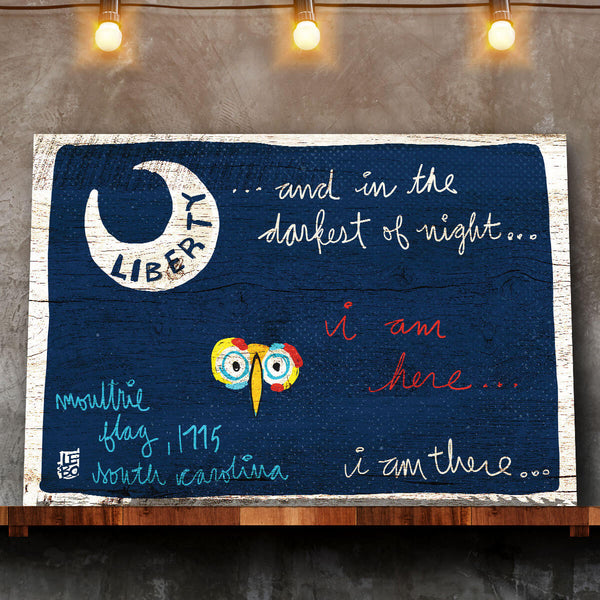 LIBERTY
...and in the
darkest of night...
i am
here...
moultrie
flag, 1775
south carolina
i am there...